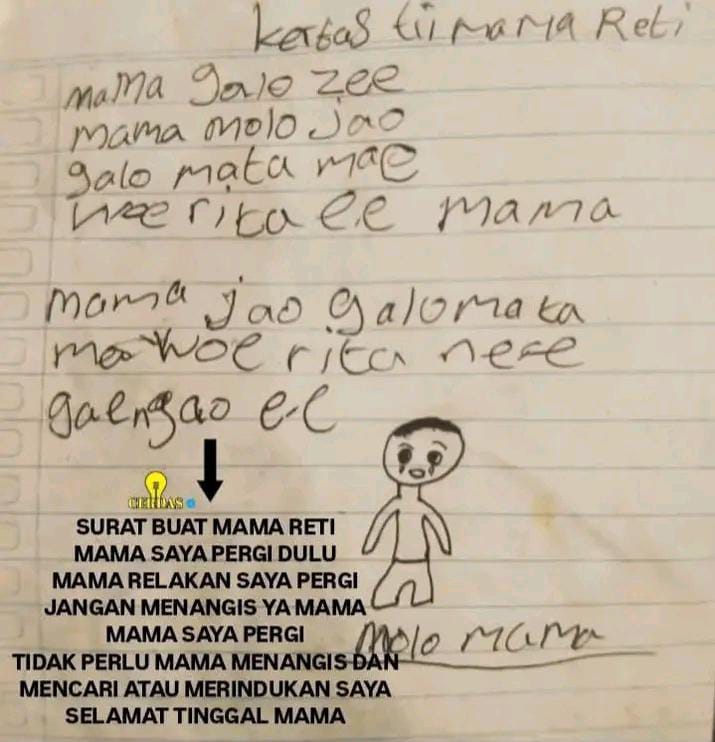 kertas tii mama Reti
mama galo zee
mama molo jao
galo mata mae
woe rita ee mama
mama jao galo mata
mae woe rita nee
gaengao e-e
CERDAS
SURAT BUAT MAMA RETI
MAMA SAYA PERGI DULU
MAMA RELAKAN SAYA PERGI
JANGAN MENANGIS YA MAMA
MAMA SAYA PERGI
molo mama
TIDAK PERLU MAMA MENANGIS DAN
MENCARI ATAU MERINDUKAN SAYA
SELAMAT TINGGAL MAMA